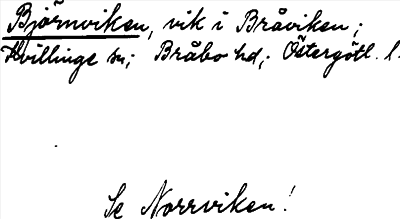 Björnviken, vik i Bråviken;
Kvillinge sn; Bråbo hd; Östergötl. l.
Se Norrviken!